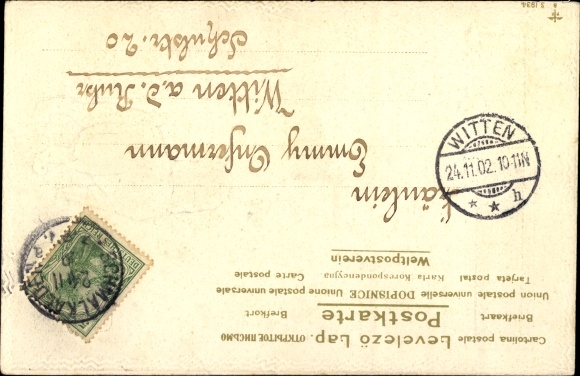 Cartolina postale Levelező Lap. ОТКРЫТОЕ ПИСЬМО
Briefkaart Postkarte Brefkort
Union postale universelle DOPISNICE Unione postale universale
Tarjeta postal Karta Korespondencyjna Carte postale
Weltpostverein
Fräulein
Emmy
Witten a. d. Ruhr
Schulstr. 20
WITTEN
24.11.02.10-11N
* * h
S 1934